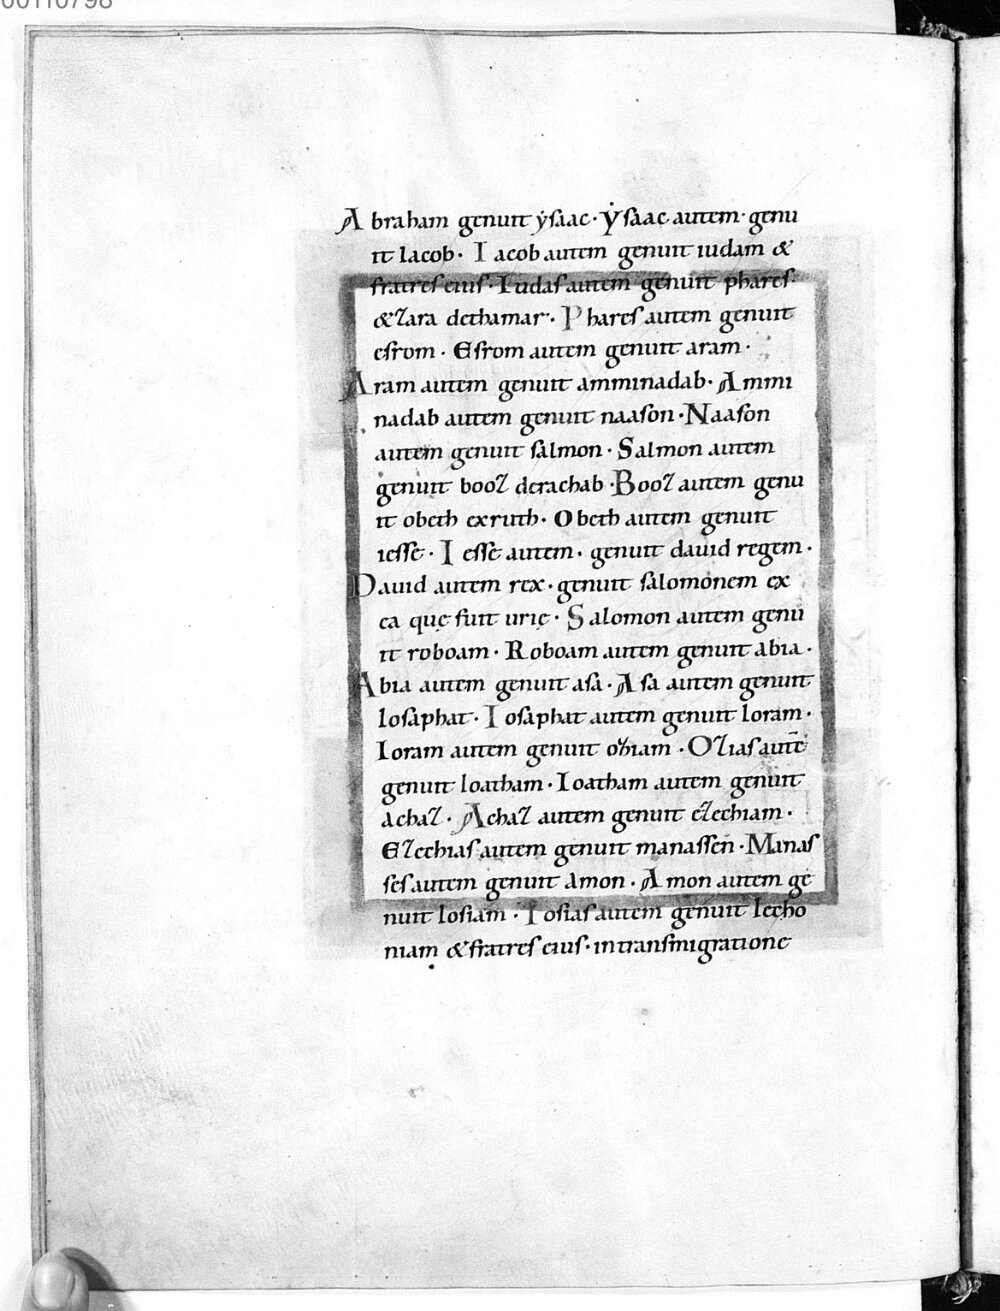 00110798
Abraham genuit ẏsaac · Ẏsaac autem · genu
it Iacob · Iacob autem genuit iudam &
fratres eius · Iudas autem genuit phares ·
& zara dethamar · Phares autem genuit
esrom · Esrom autem genuit aram ·
Aram autem genuit amminadab · Ammi
nadab autem genuit naason · Naason
autem genuit salmon · Salmon autem
genuit booz derachab · Booz autem genu
it obeth exruth · Obeth autem genuit
iesse · Iesse autem · genuit dauid regem ·
Dauid autem rex · genuit salomonem ex
ea quę fuit urię · Salomon autem genu
it roboam · Roboam autem genuit abia ·
Abia autem genuit asa · Asa autem genuit
Iosaphat · Iosaphat autem genuit Ioram ·
Ioram autem genuit oziam · Ozias autē
genuit Ioatham · Ioatham autem genuit
achaz · Achaz autem genuit ezechiam ·
Ezechias autem genuit manassen · Manas
ses autem genuit Amon · Amon autem ge
nuit Iosiam · Iosias autem genuit Iecho
niam & fratres eius · intransmigratione